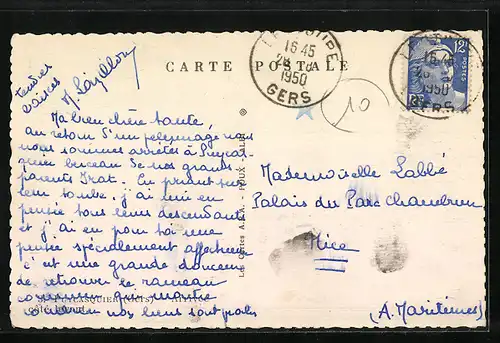 CARTE POSTALE
LECTOURE
16 45
28
1950
GERS
12F
POSTES
10
tendres
baisers
Ma bien chère tante,
au retour d'un pèlerinage nous
nous sommes arrêtés à Puycas-
quier berceau de nos grands
parents Prat. En priant sur
leur tombe j'ai mis en
pensée tous leurs descendants
et j'ai eu pour toi une
pensée spécialement affectueuse
c'est une grande douceur
de retrouver le rameau
nos liens sont
PUYCASQUIER (GERS)
Les Cartes A.P.A. - POUX - ALBI
Mademoiselle Labbé
Palais du Parc Chambrun
Nice
(A. Maritimes)